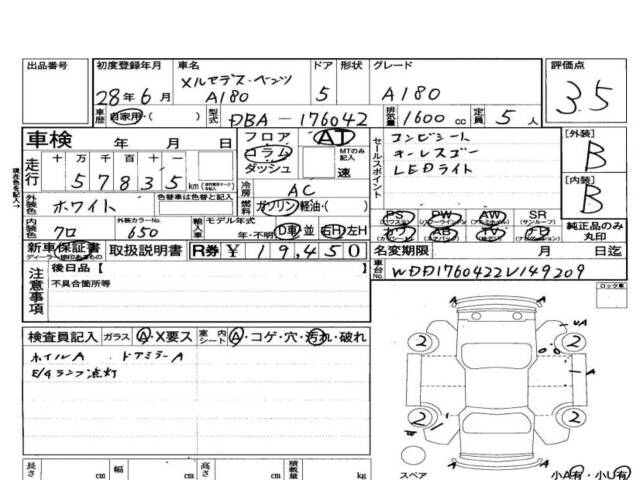 出品番号 初度登録年月 車名 ドア 形状 グレード 評価点
28年6月 メルセデス・ベンツ A180 5 A180 3.5
車歴 自家用・( ) 型式 DBA-176042 排気量 1600cc 定員 5人
車検 年 月 日 フロア AT コンビシート [外装]
コラム MTのみ記入 キーレスゴー B
ダッシュ 速 LEDライト
走行 十万千百十一 セールスポイント [内装]
57835km B
外装色 ホワイト 色替車は色替と記入 冷房 AC
燃料 ガソリン・軽油・( )
PS PW AW SR 純正品のみ丸印
(パワステ) (パワーウインドウ) (アルミホイル) (サンルーフ)
内装色 クロ 外装カラーNo. 650 輸入車 モデル年式 年・不明 D車 並 右H 左H
カワ AB TV
(エアバッグ)
新車保証書 取扱説明書 R券 ¥19,450 名変期限 月 日迄
車台No. WDD1760422V149209
注意事項 後日品【
不具合箇所等
ロック車
検査員記入 ガラス A・X要ス 室内シート A・コゲ・穴・汚れ・破れ
ホイルA ドアミラーA
E/Gランプ点灯
2 2
2 2
A
A
A
UA
スペア 小A有・小U有
長さ cm 幅 cm 高さ cm 積載量 kg
現在色を記入→